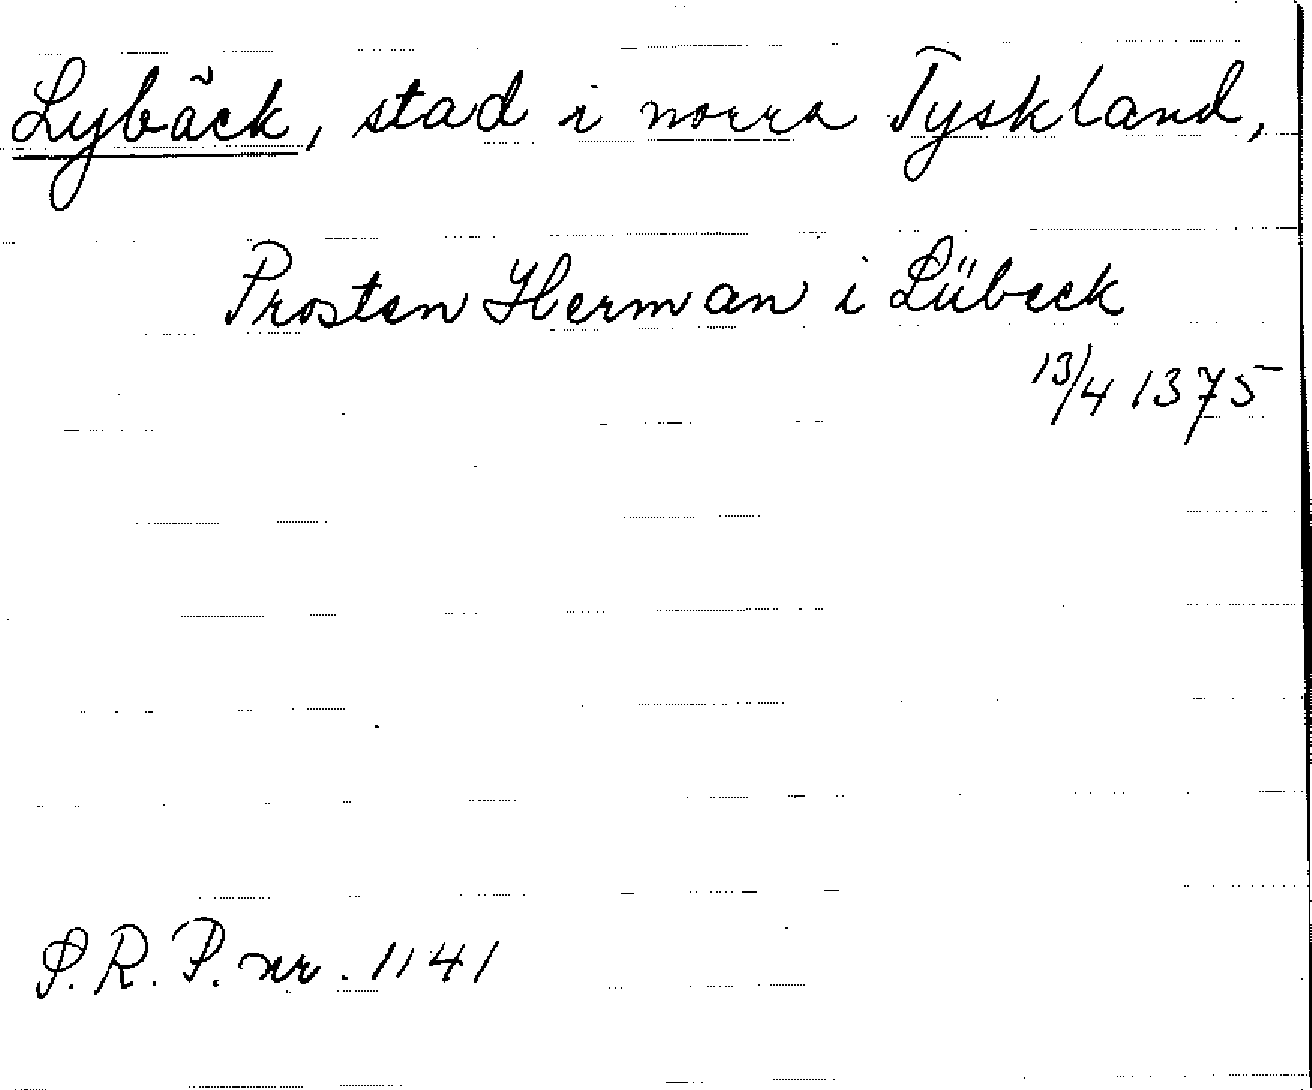 Lybäck, stad i norra Tyskland,
Prosten Herman i Lübeck
13/4 1375
S.R.P. nr. 1141